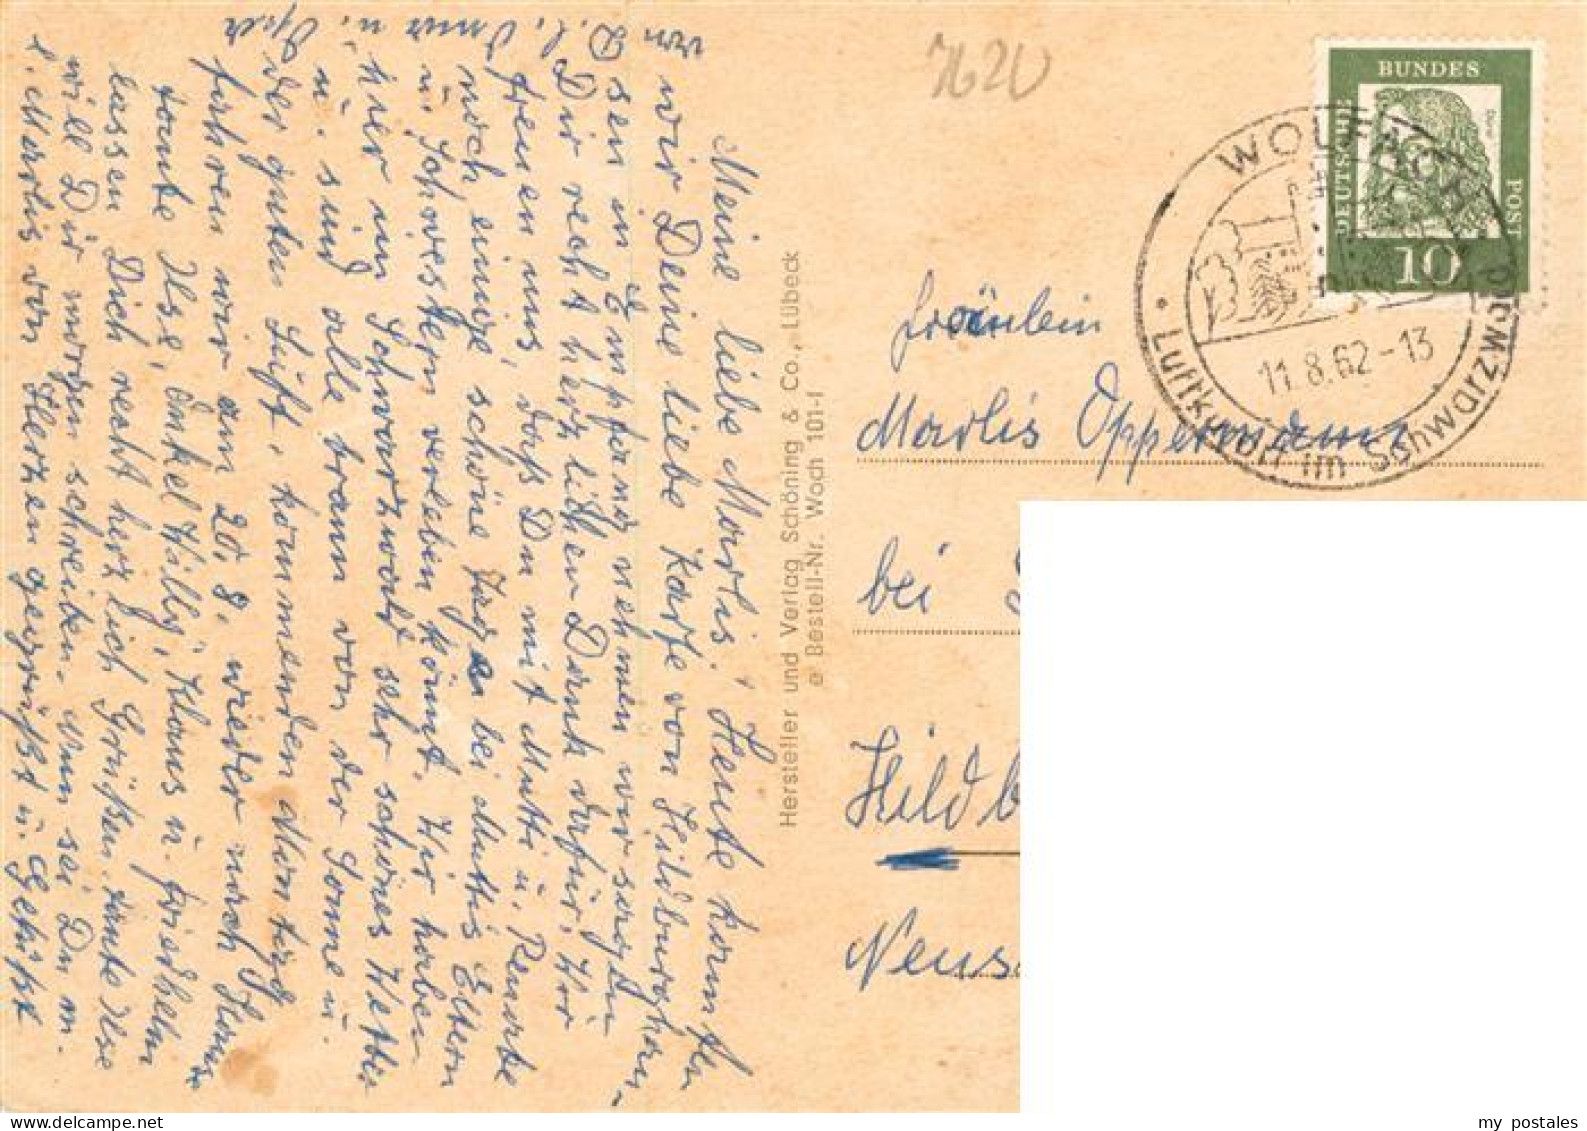 Meine liebe Marlis! Heute konnten
wir Deine liebe Karte von Hildburghau-
sen in Empfang nehmen wir sagen
Dir recht herzlichen Dank dafür. Wir
freuen uns, daß Du mit Mutti u. Renate
noch einige schöne Tage bei Muttis Eltern
u. Schwestern verleben könnt. Wir haben
hier im Schwarzwald sehr schönes Wetter
u. sind alle braun von der Sonne u.
der guten Luft, kommenden Montag
fahren wir am 20.8. wieder nach Hause
Tante Ilse, Onkel Willy, Klaus u. Friedhelm
lassen Dich recht herzlich Grüßen. Tante Ilse
will Dir morgen schreiben. Nun sei Du m.
l. Marlis von Herzen gegrüßt u. Geküßt
von
Hersteller und Verlag Schöning & Co., Lübeck
e Bestell-Nr. Wach 101-f
7620
BUNDES
DEUTSCHE
POST
Dürer
10
WOLFACH
Luftkurort im Schwarzwald
11.8.62-13
Fräulein
Marlis Oppermann
bei
Hildb
Neus
my postales